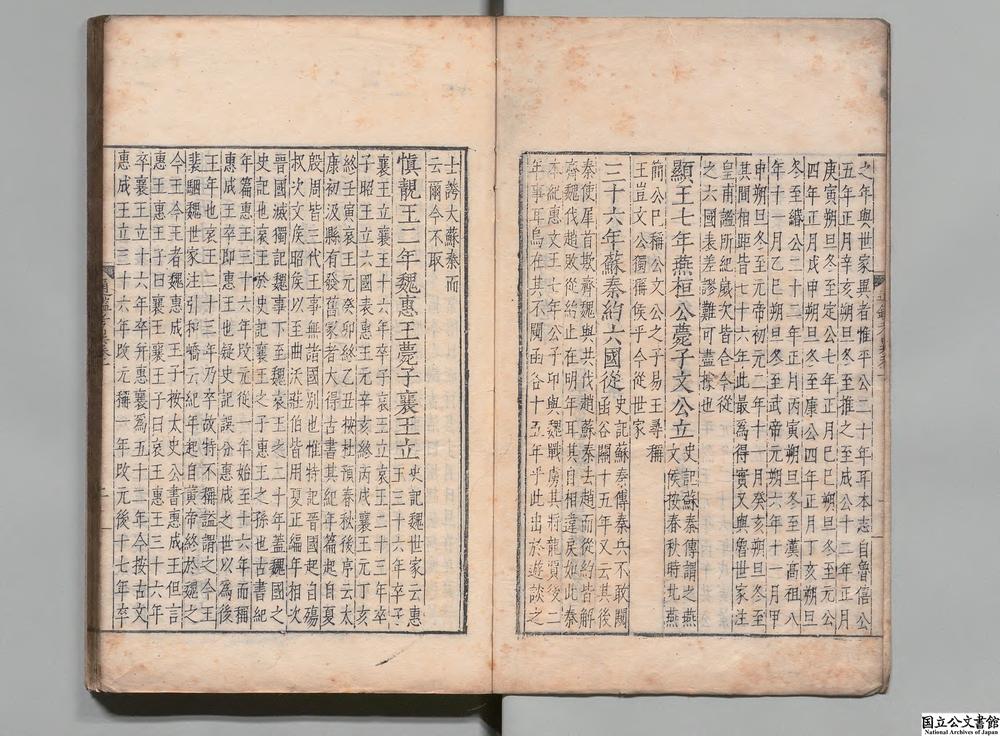 之年與世家異者惟平公二十年耳本志自魯僖公
五年正月辛亥朔旦冬至推之至成公十二年正月
庚寅朔旦冬至定公七年正月己巳朔旦冬至元公
四年正月戊申朔旦冬至康公四年正月丁亥朔旦
冬至緡公二十二年正月丙寅朔旦冬至漢高祖八
年十一月乙巳朔旦冬至武帝元朔六年十一月甲
申朔旦冬至元帝初元二年十一月癸亥朔旦冬至
其間相距皆七十六年此最為得實又與魯世家注
皇甫謐所紀歲次皆合今從
之六國表差謬難可盡據也
顯王七年燕桓公薨子文公立
史記蘇秦傳謂之燕
文侯按春秋時北燕
簡公已稱公文公之子易王尋稱
王豈文公獨稱侯乎今從世家
三十六年蘇秦約六國從
史記蘇秦傳秦兵不敢闚
函谷關十五年又云其後
秦使犀首欺齊魏與共伐趙蘇秦去趙而從約皆解
齊魏伐趙敗從約止在明年耳其自相違戾如此秦
本紀惠文王七年公子卬與魏戰虜其將龍賈後二
年事耳烏在其不闚函谷十五年乎此出於遊談之
士誇大蘇秦而
云爾今不取
慎靚王二年魏惠王薨子襄王立
史記魏世家云惠
王三十六年卒子
襄王立襄王十六年卒子哀王立哀王二十三年卒
子昭王立六國表惠王元辛亥終丙戌襄王元丁亥
終壬寅哀王元癸卯終乙丑按杜預春秋後序云太
康初汲縣有發舊冢者大得古書其紀年篇起自夏
殷周皆三代王事無諸國別也惟特記晉國起自殤
叔次文侯昭侯以至曲沃莊伯皆用夏正編年相次
晉國滅獨記魏事下至魏哀王之二十年蓋魏國之
史記也哀王於史記襄王之子惠王之孫也古書紀
年篇惠王三十六年改元從一年始至十六年而稱
惠成王卒即惠王也疑史記誤分惠成之世以為後
王年也哀王二十三年乃卒故特不稱謚謂之今王
裴駰魏世家注引和嶠云紀年起自黃帝終於魏之
今王今王者魏惠成王子按太史公書惠成王但言
惠王惠王子曰襄王襄王子曰哀王惠王三十六年
卒襄王立十六年卒并惠襄為五十二年今按古文
惠成王立三十六年改元稱一年改元後十七年卒
国立公文書館
National Archives of Japan